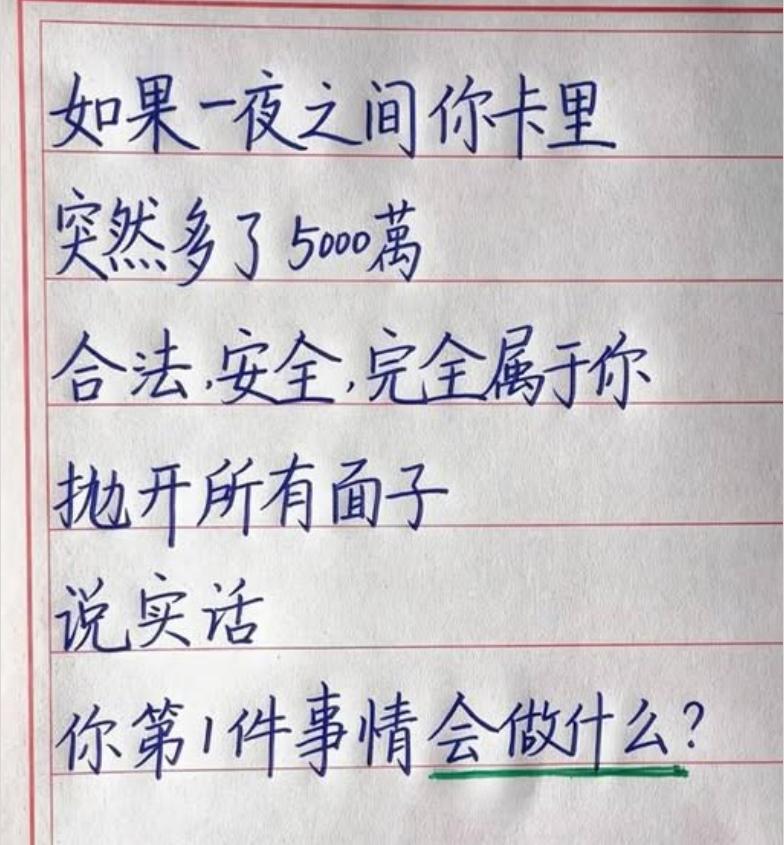 如果一夜之间你卡里
突然多了5000萬
合法,安全,完全属于你
抛开所有面子
说实话
你第1件事情会做什么?